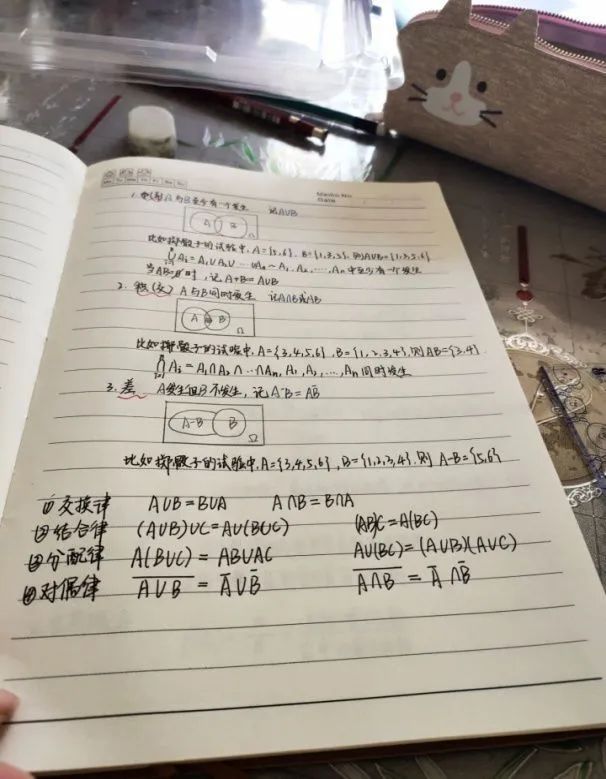 Mo Tu We Th Fr Sa Su
Memo No.
Date
1. 和(并) A与B至少有一个发生 记A∪B
A B Ω
比如掷骰子的试验中, A={5,6}, B={1,3,5}, 则A∪B={1,3,5,6}
Ai = A₁∪A₂∪ ~ A₁, A₂, ..., An 中至少有一个发生
当AB=∅时, 记A+B=A∪B
2. (交) A与B同时发生 记A∩B或AB
A B Ω
比如掷骰子的试验中, A={3,4,5,6}, B={1,2,3,4}, 则AB={3,4}.
Ai = A₁∩A₂∩...∩An, A₁, A₂, ..., An 同时发生
3. 差 A发生但B不发生, 记A-B = AB̅
A-B B Ω
比如掷骰子的试验中, A={3,4,5,6}, B={1,2,3,4}. 则 A-B={5,6}
① 交换律 A∪B=B∪A A∩B=B∩A
② 结合律 (A∪B)∪C=A∪(B∪C) (AB)C=A(BC)
③ 分配律 A(B∪C)=AB∪AC A∪(BC)=(A∪B)(A∪C)
④ 对偶律 A̅∪̅B̅ = A̅∪B̅ A̅∩̅B̅ = A̅∩B̅